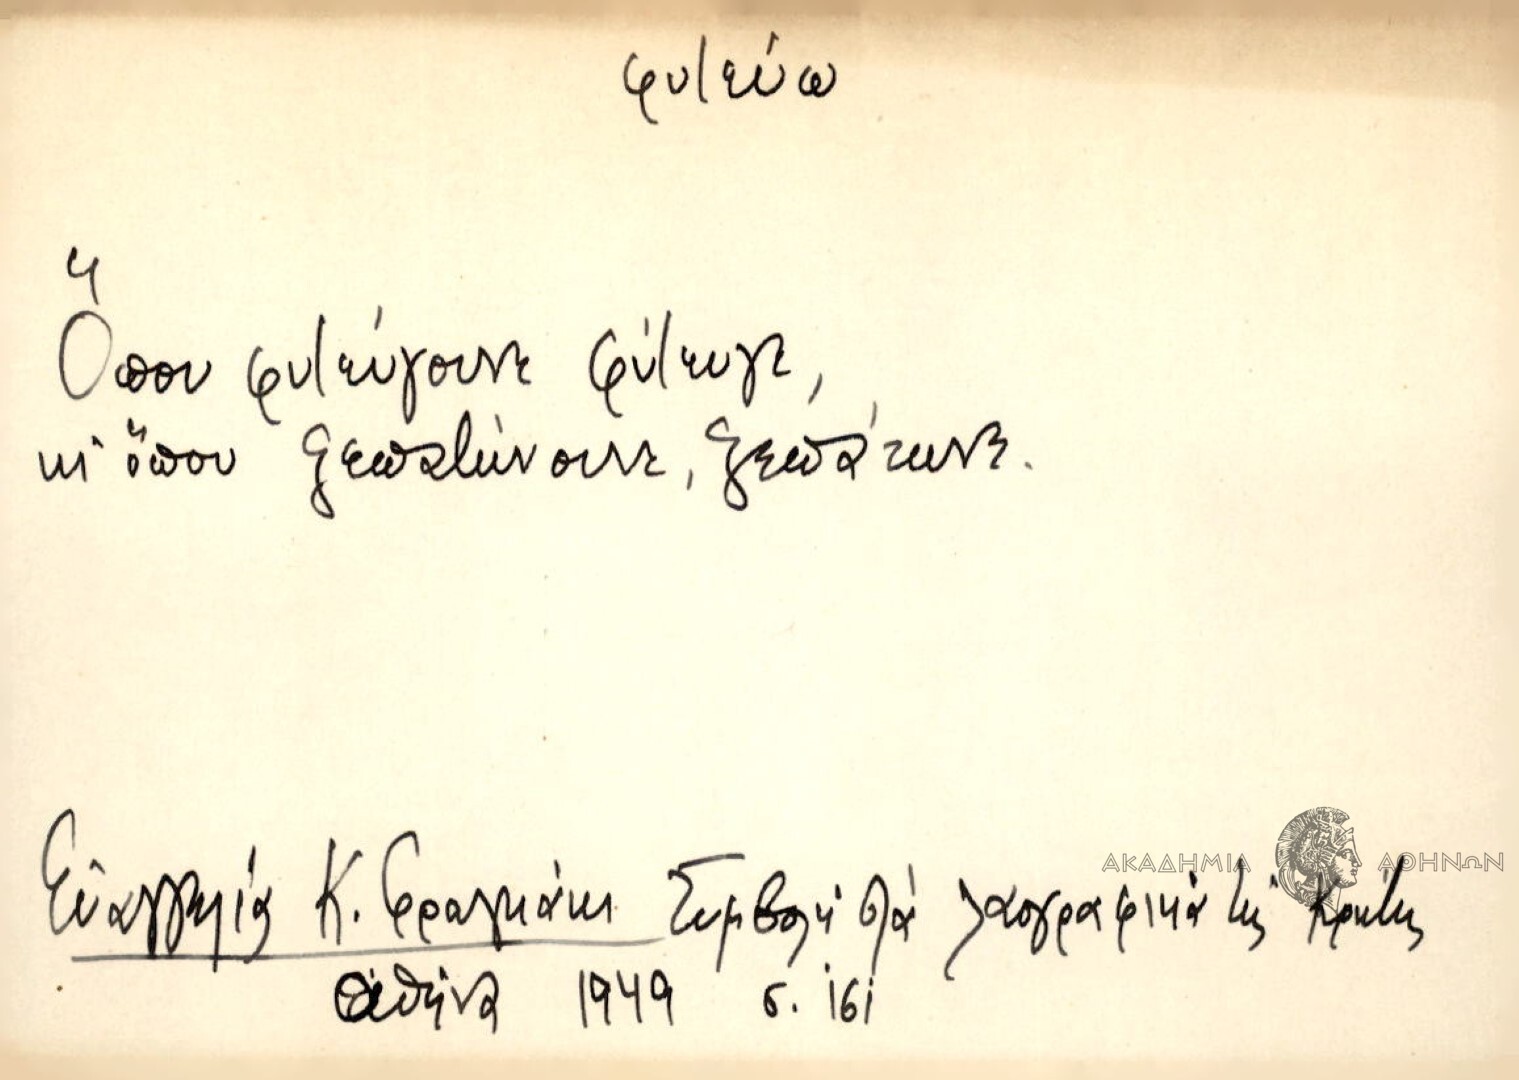 φυτεύω
Ὅπου φυτεύγουνε φύτευγε,
κι ὅπου ξεπατώνουνε, ξεπάτωνε.
Εὐαγγελία Κ. Φραγκάκι Συμβολή στά λαογραφικά τῆς Κρήτης
Ἀθήνα 1949 σ. 161
ΑΚΑΔΗΜΙΑ ΑΘΗΝΩΝ